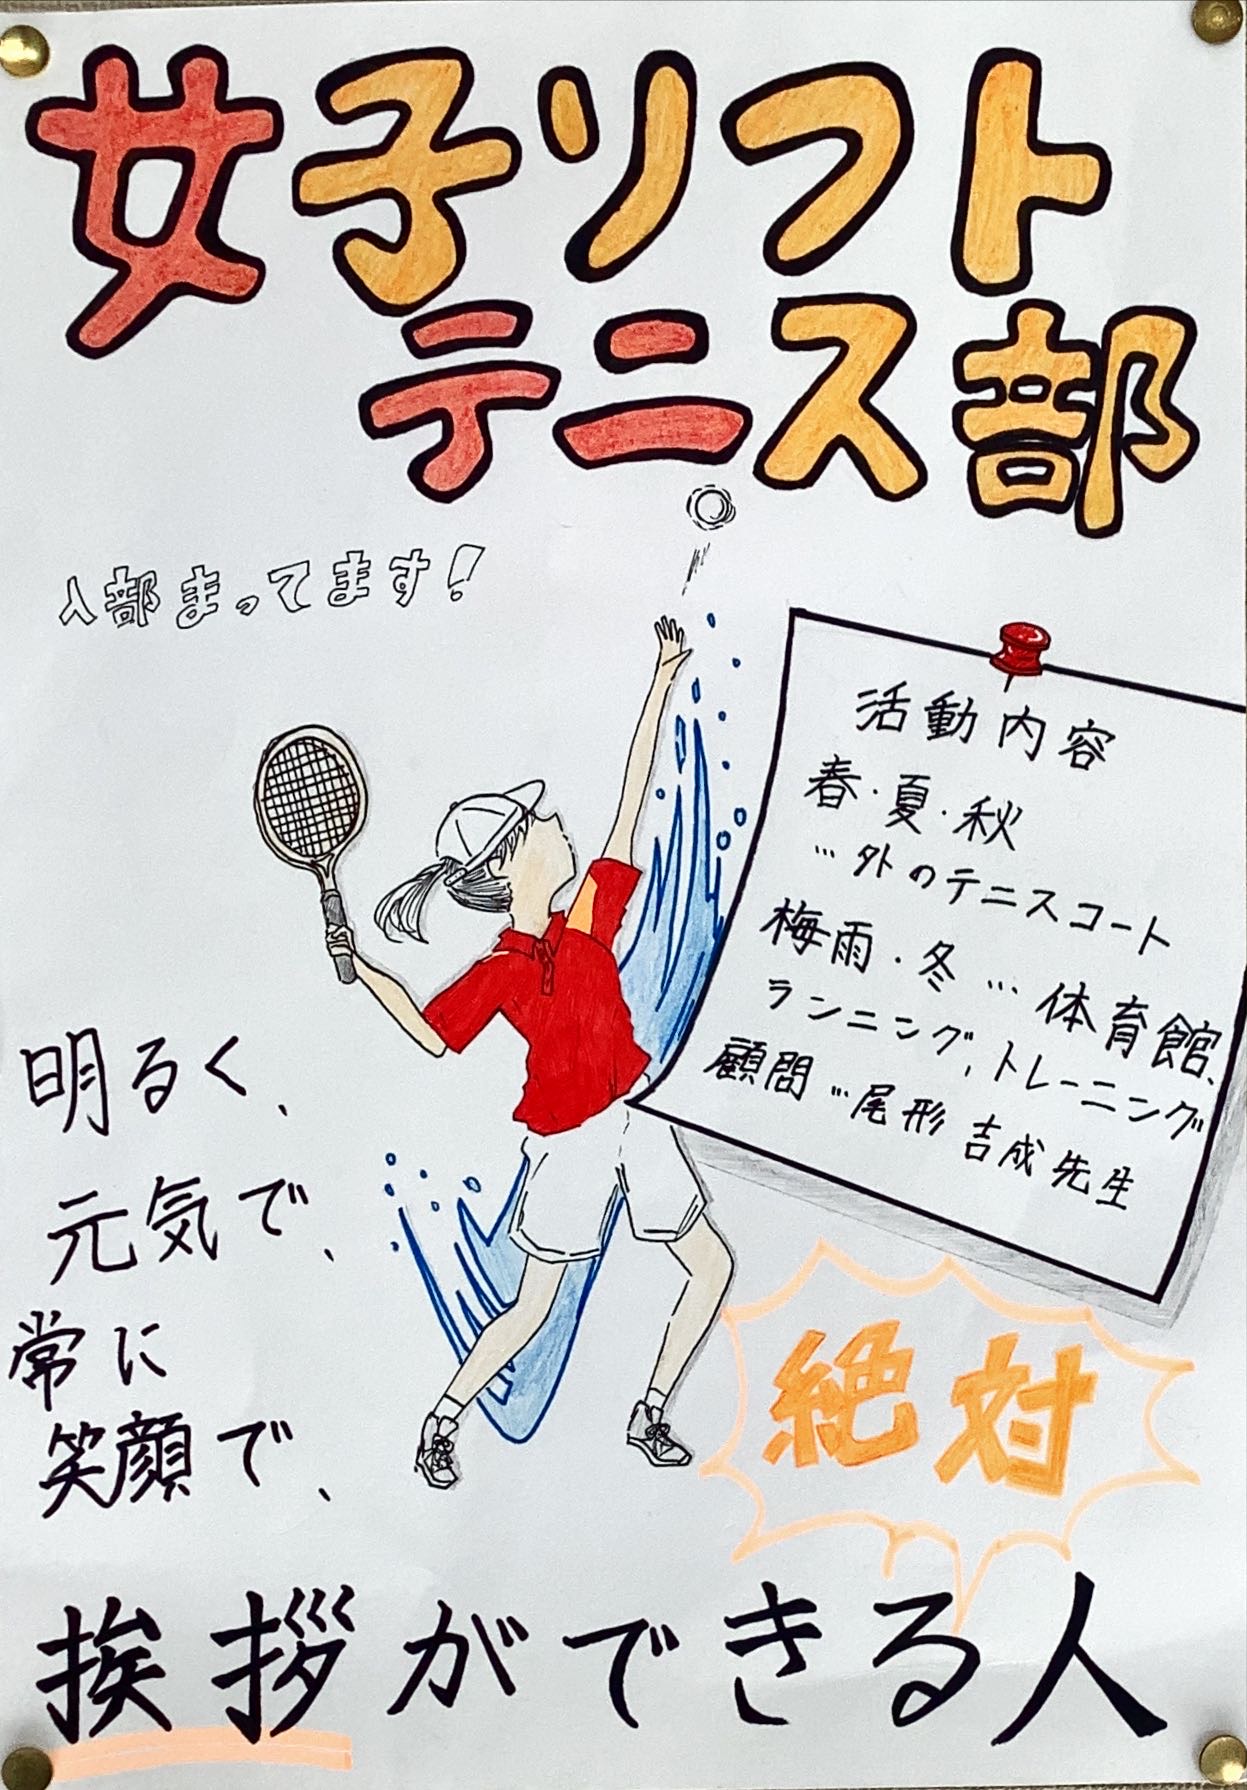 女子ソフト
テニス部
入部まってます!
活動内容
春・夏・秋
…外のテニスコート
梅雨・冬…体育館、
ランニング、トレーニング
顧問…尾形吉成先生
明るく、
元気で、
常に
笑顔で、
絶対
挨拶ができる人